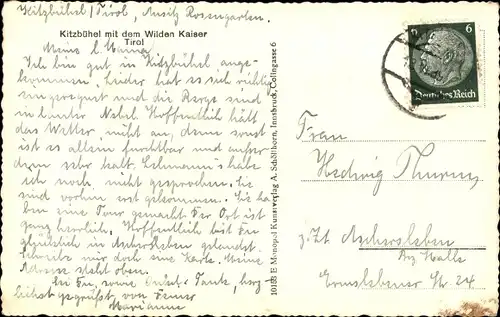 Kitzbühel/Tirol, Ansitz Rosengarten.
Kitzbühel mit dem Wilden Kaiser
Tirol
Meine l. Mama!
Ich bin gut in Kitzbühel ange-
kommen. Leider hat es sich richtig
eingeregnet und die Berge sind
in lauter Nebel. Hoffentlich hält
das Wetter nicht an, denn sonst
ist es allem furchtbar und außer-
dem sehr kalt. Lehmann's habe
ich noch nicht gesprochen. Sie
sind vorhin erst gekommen. Sie ha-
ben eine Tour gemacht. Der Ort ist
ganz herrlich. Hoffentlich bist Du
glücklich in Aschersleben gelandet.
Schreibe mir doch eine Karte. Meine
Adresse steht oben.
sei Du, sowie Onkel + Tante, herz-
lichst gegrüßt von Deiner
Marianne
10183 E Monopol Kunstverlag A. Schöllhorn, Innsbruck, Colingasse 6
6
Deutsches Reich
Frau
Hedwig
z. Zt. Aschersleben
Bez. Halle
Ermslebener Str. 24